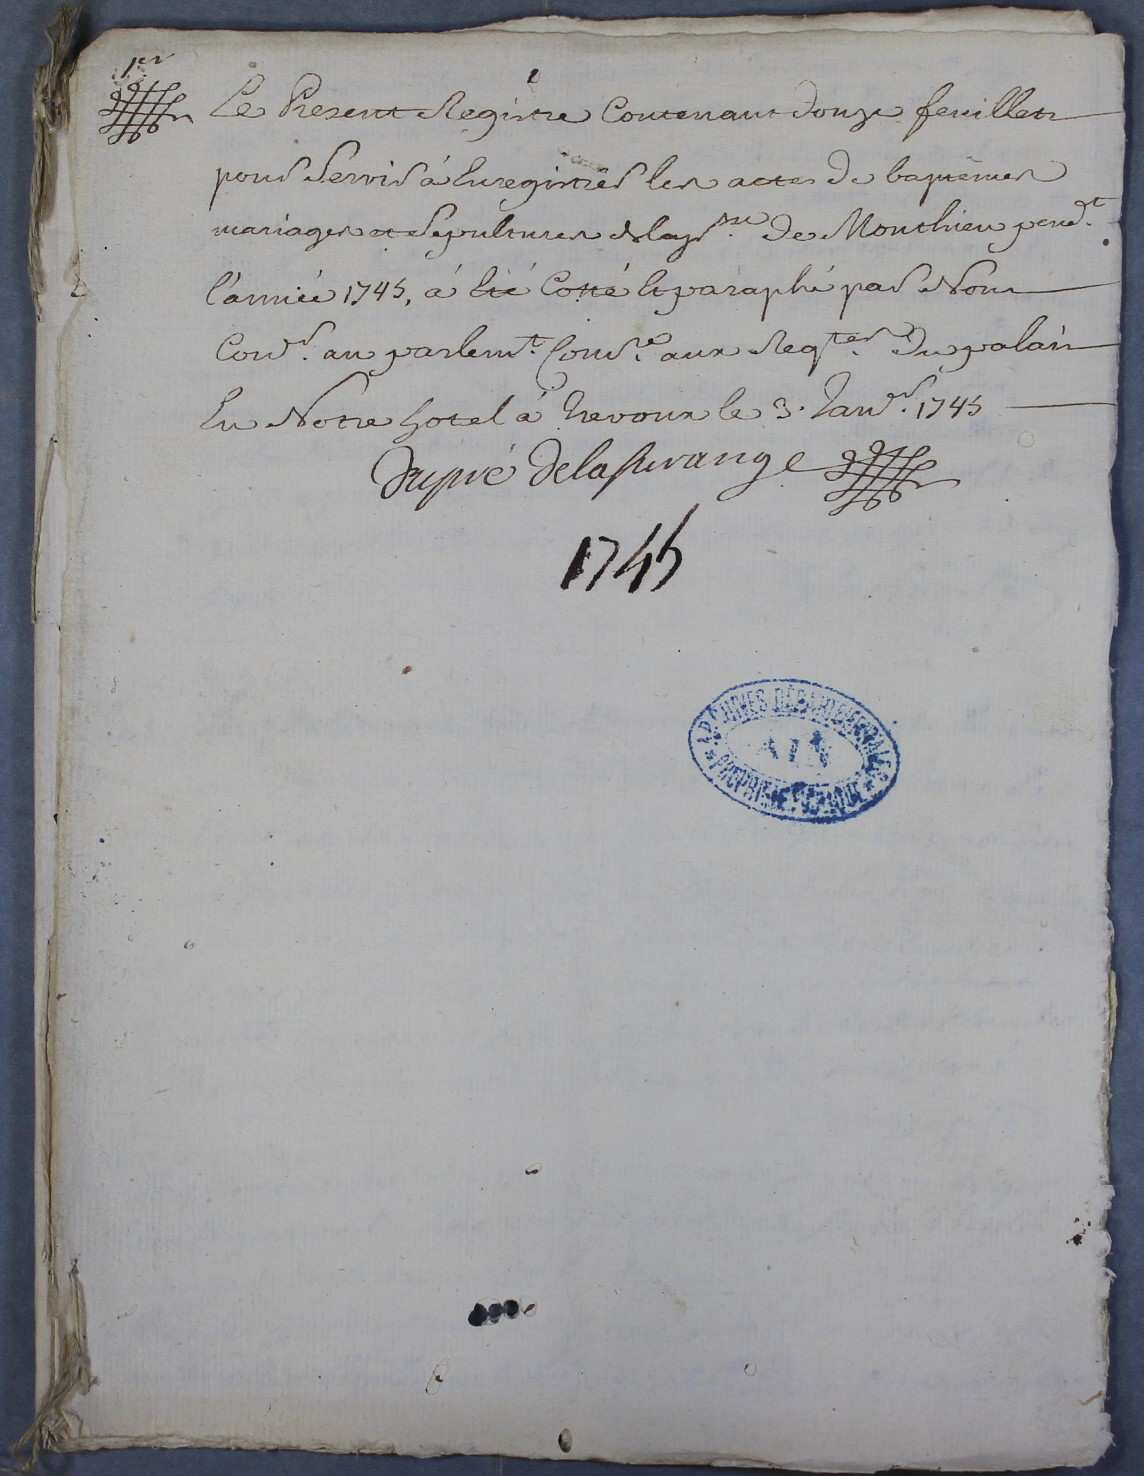 1er
Le Present Registre Contenant douze feuillets
pour Servir à Enregistrer les actes de baptêmes
mariages et sepultures de la psse de Monthieu pendt
l'année 1745, a été Cotté et paraphé par Nous
Conser au parlemt Comre aux Reqtes du palais
En Notre hotel à Trevoux le 3. Janvr 1745
Dupré Delasurange
1745
ARCHIVES DÉPARTEMENTALES
AIN
PROPRIÉTÉ PUBLIQUE